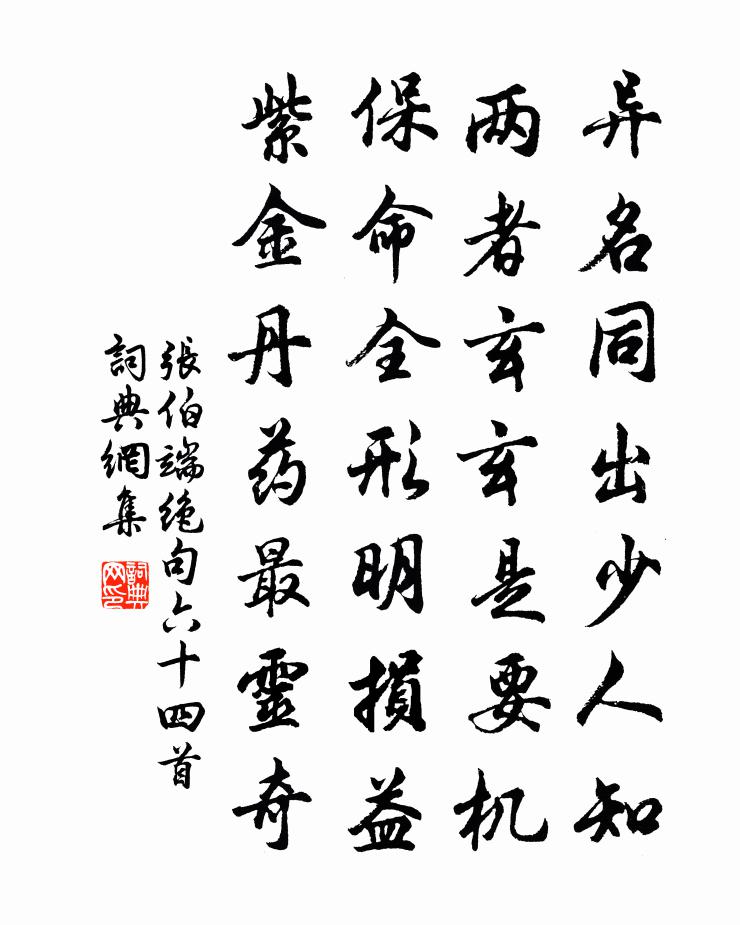 异名同出少人知
两者玄玄是要机
保命全形明損益
紫金丹药最靈奇
張伯端絶句六十四首
詞典網集
詞典网印